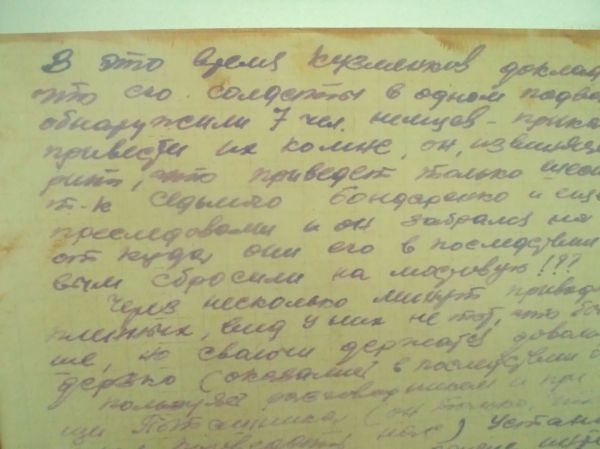 В это время Кузменков доклад
что его солдаты в одном подва
обнаружили 7 чел. немцев - прика
привести их ко мне, он, извиняяс
рит, что приведет только шест
т-к седьмого Бондаренко и еще
преследовали и он забрался на
от куда они его в последствии
вым сбросили на мостовую!??
Через несколько минут привод
пленных, вид у них не тот, что бы
ше, но сволочи держатся доволь
дерзко (оказались в последствии
пользуясь разговорником и при
щи Плотешника (он только, что
) Устан